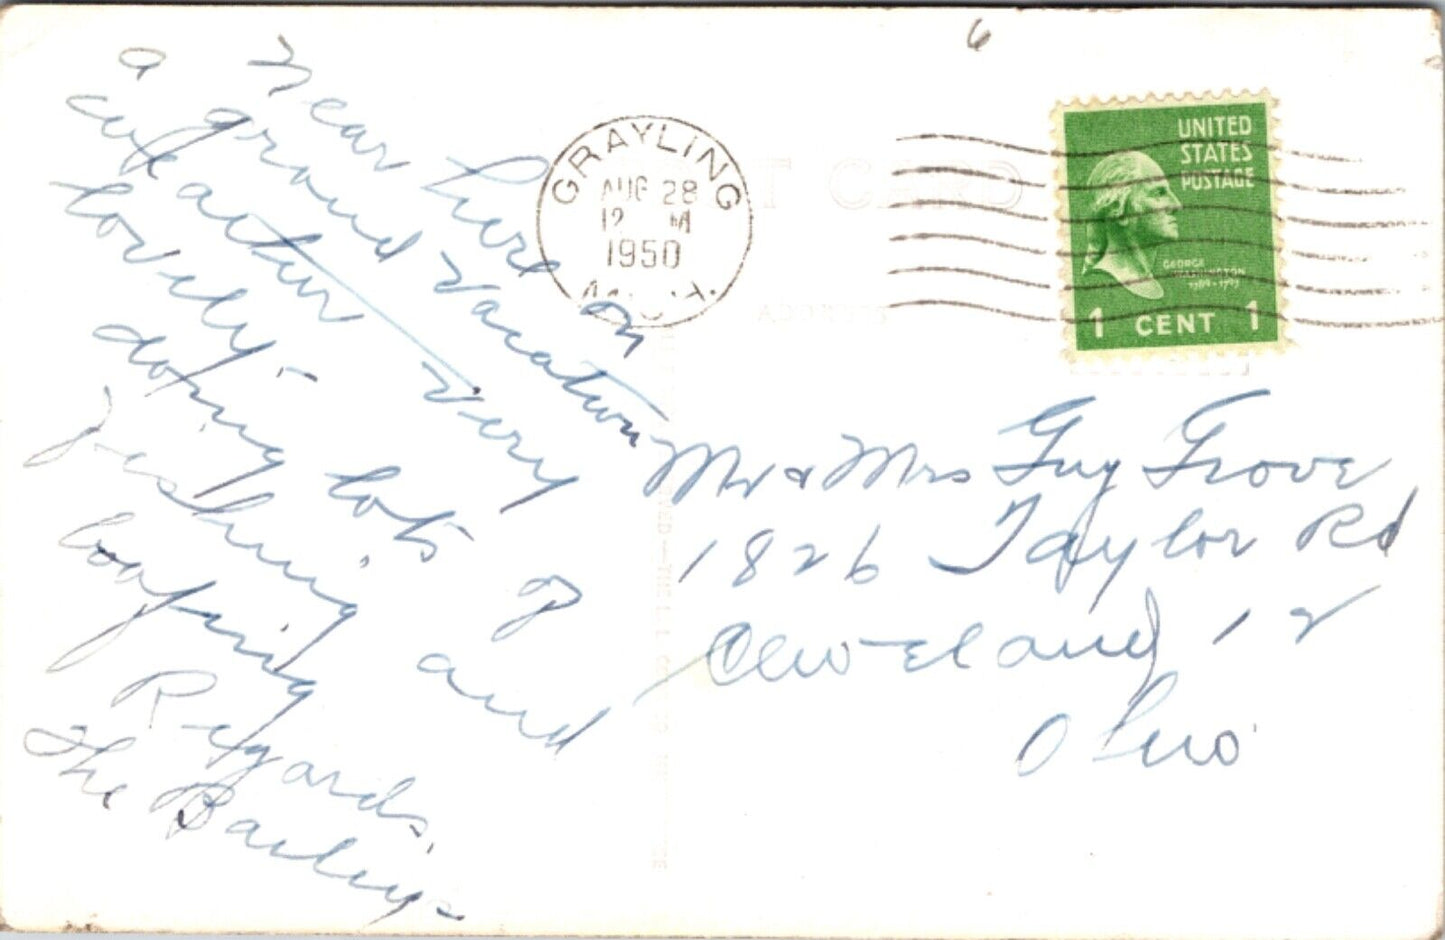 Near here on
a grand vacation
weather very
lovely -
doing lots of
fishing and
loafing
Regards,
The Baileys
6
GRAYLING
AUG 28
12 M
1950
POST CARD
ADDRESS
UNITED
STATES
POSTAGE
GEORGE
WASHINGTON
1789-1797
1 CENT 1
Mr & Mrs Guy Grove
1826 Taylor Rd
Cleveland 12
Ohio